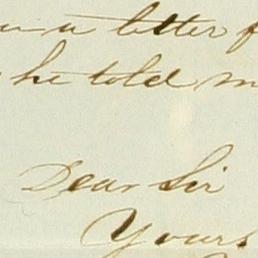 a letter
he told
Dear Sir
Yours